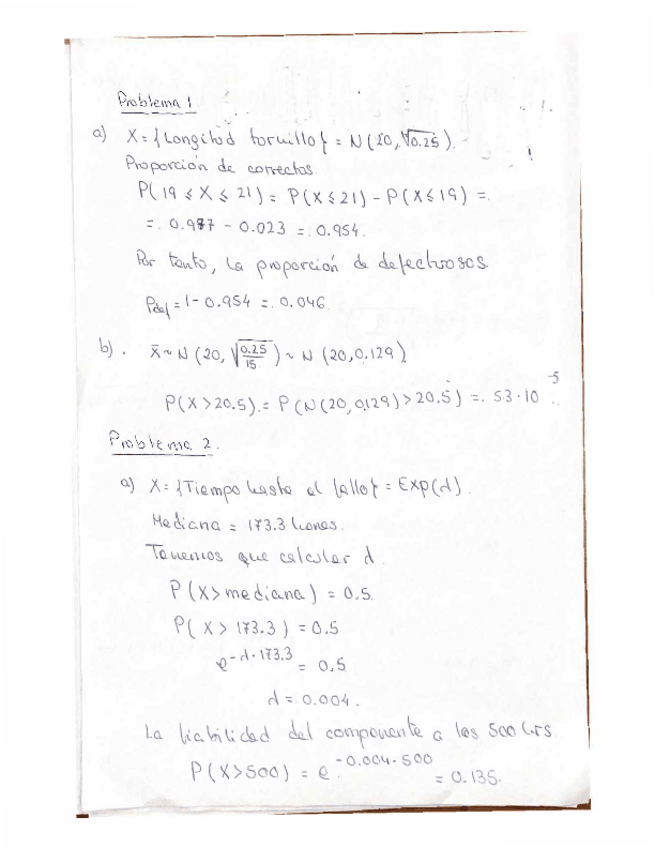 Problema 1
a) X = {Longitud tornillo} = N(20, √0.25).
Proporción de correctos.
P(19 ≤ X ≤ 21) = P(X ≤ 21) - P(X ≤ 19) =
= 0.977 - 0.023 = 0.954.
Por tanto, la proporción de defectuosos
Pdef = 1 - 0.954 = 0.046
b). x̄ ~ N(20, √(0.25/15)) ~ N(20, 0.129)
P(X > 20.5) = P(N(20, 0.129) > 20.5) = 5.3·10⁻⁵
Problema 2.
a) X = {Tiempo hasta el fallo} = Exp(λ).
Mediana = 173.3 horas.
Tenemos que calcular λ
P(X > mediana) = 0.5.
P(X > 173.3) = 0.5
e^(-λ·173.3) = 0.5
λ = 0.004.
La fiabilidad del componente a las 500 hrs
P(X > 500) = e^(-0.004·500) = 0.135.